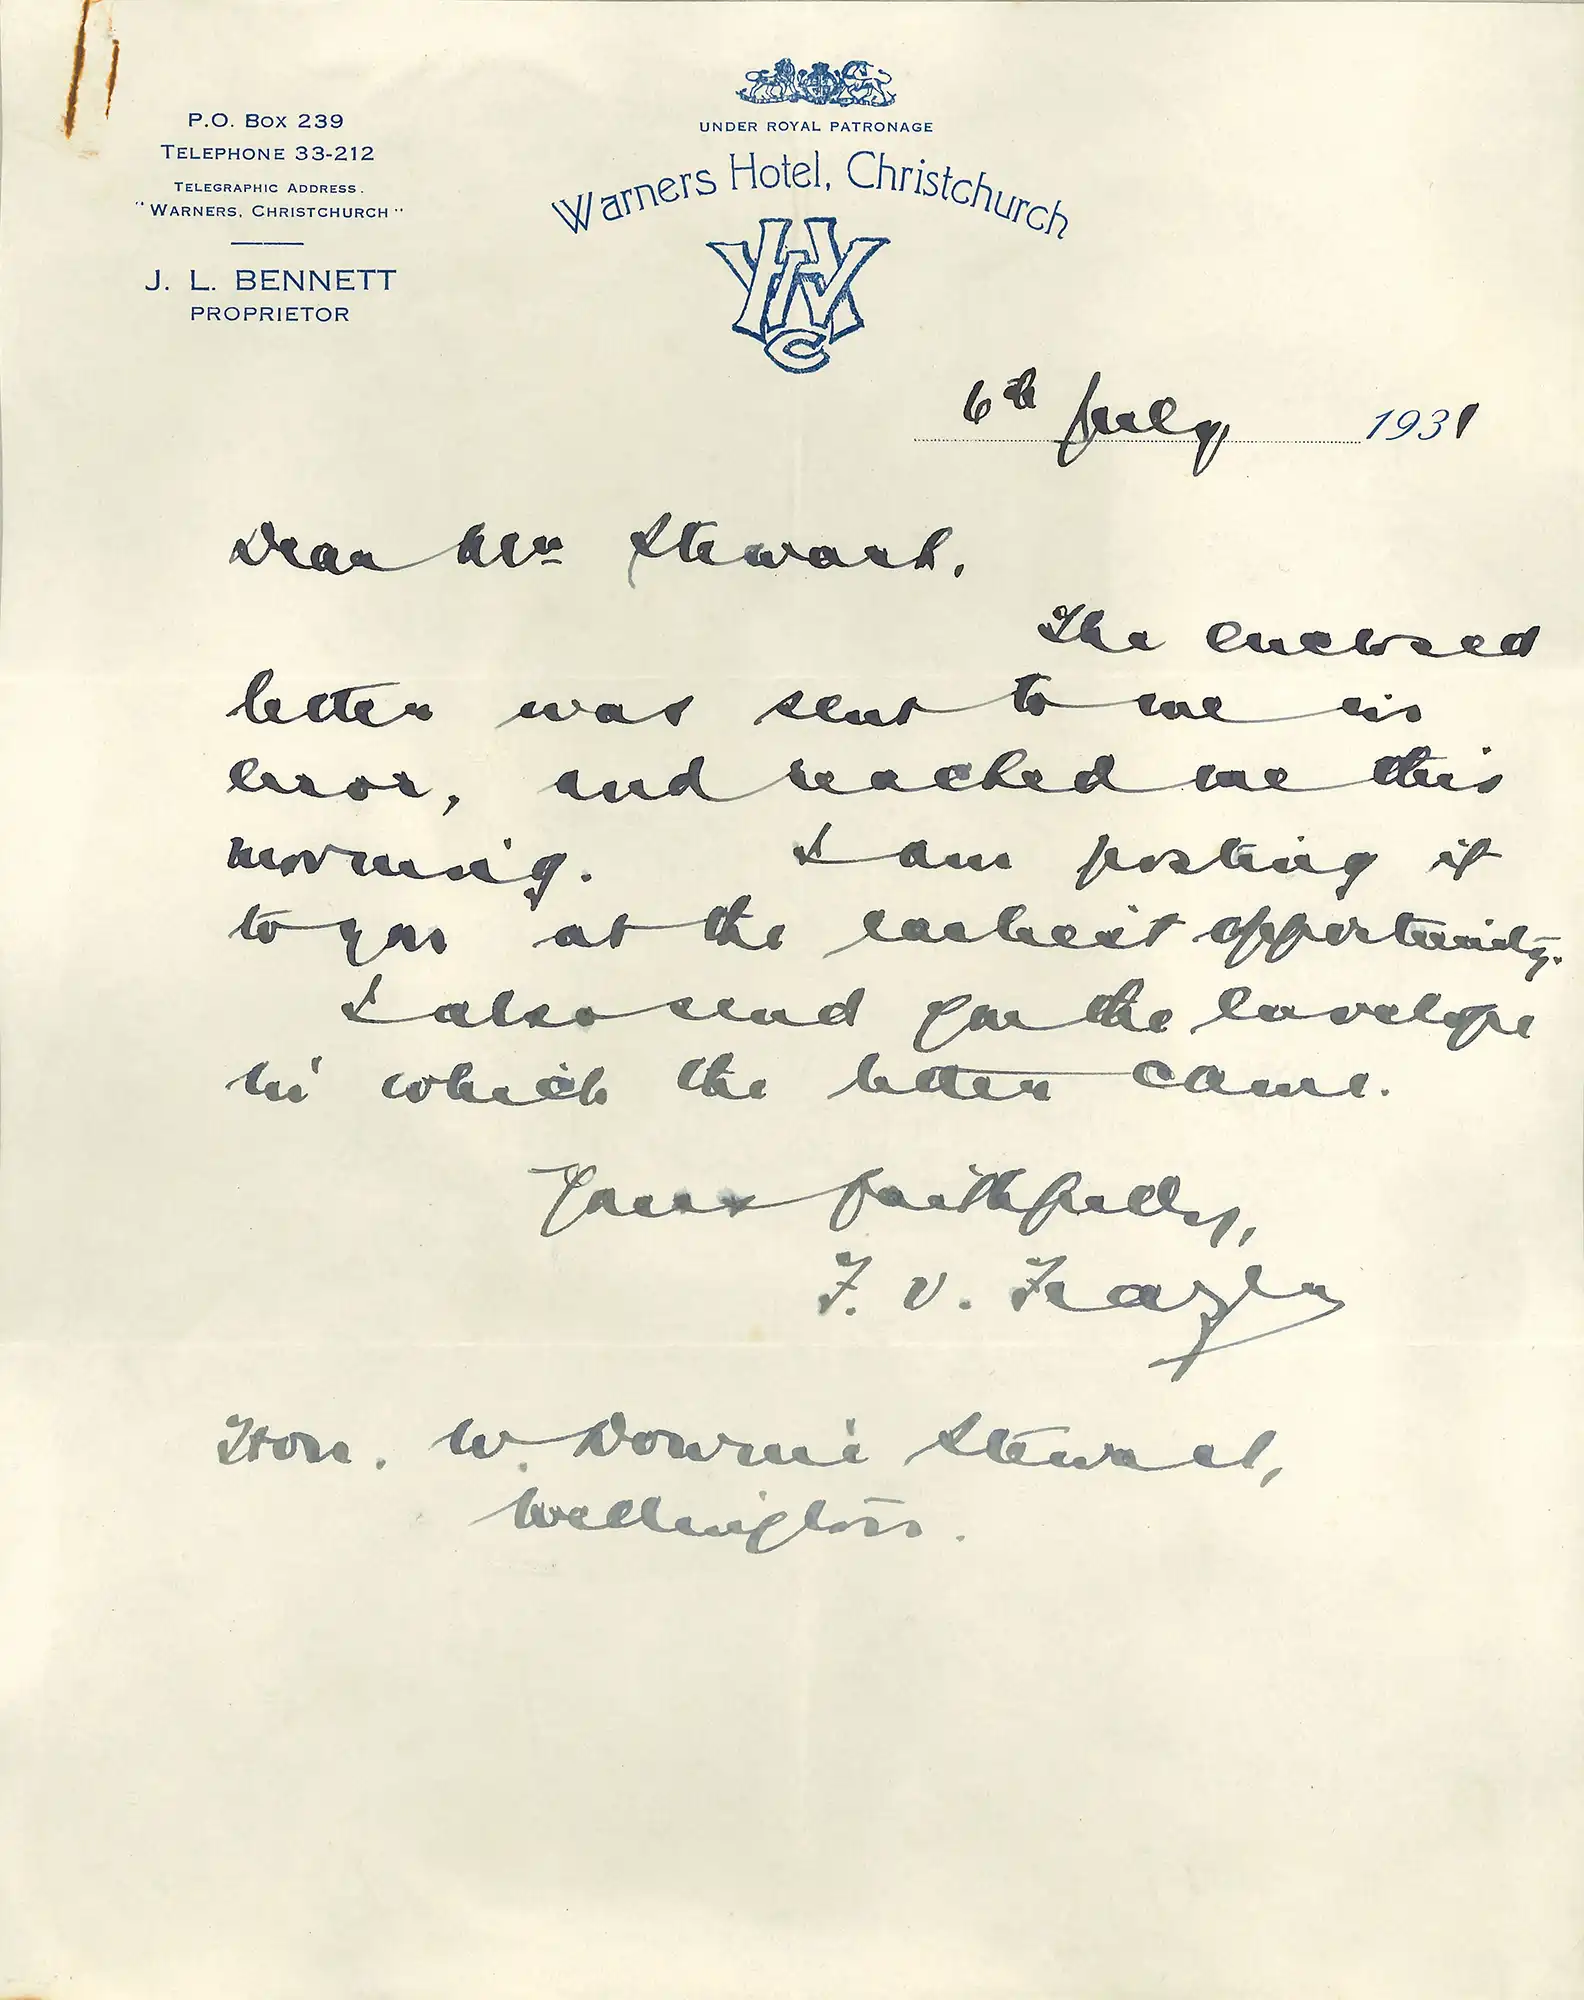 P.O. Box 239
Telephone 33-212
Telegraphic Address.
"Warners, Christchurch"
J. L. BENNETT
PROPRIETOR
UNDER ROYAL PATRONAGE
Warners Hotel, Christchurch
WHC
6th July, 1931
Dear Mr Stewart,
The enclosed
letter was sent to me in
error, and reached me this
morning. I am posting it
to you at the earliest opportunity.
I also send you the envelope
in which the letter came.
Yours faithfully,
F. V. Frazer
Hon. W. Downie Stewart,
Wellington.